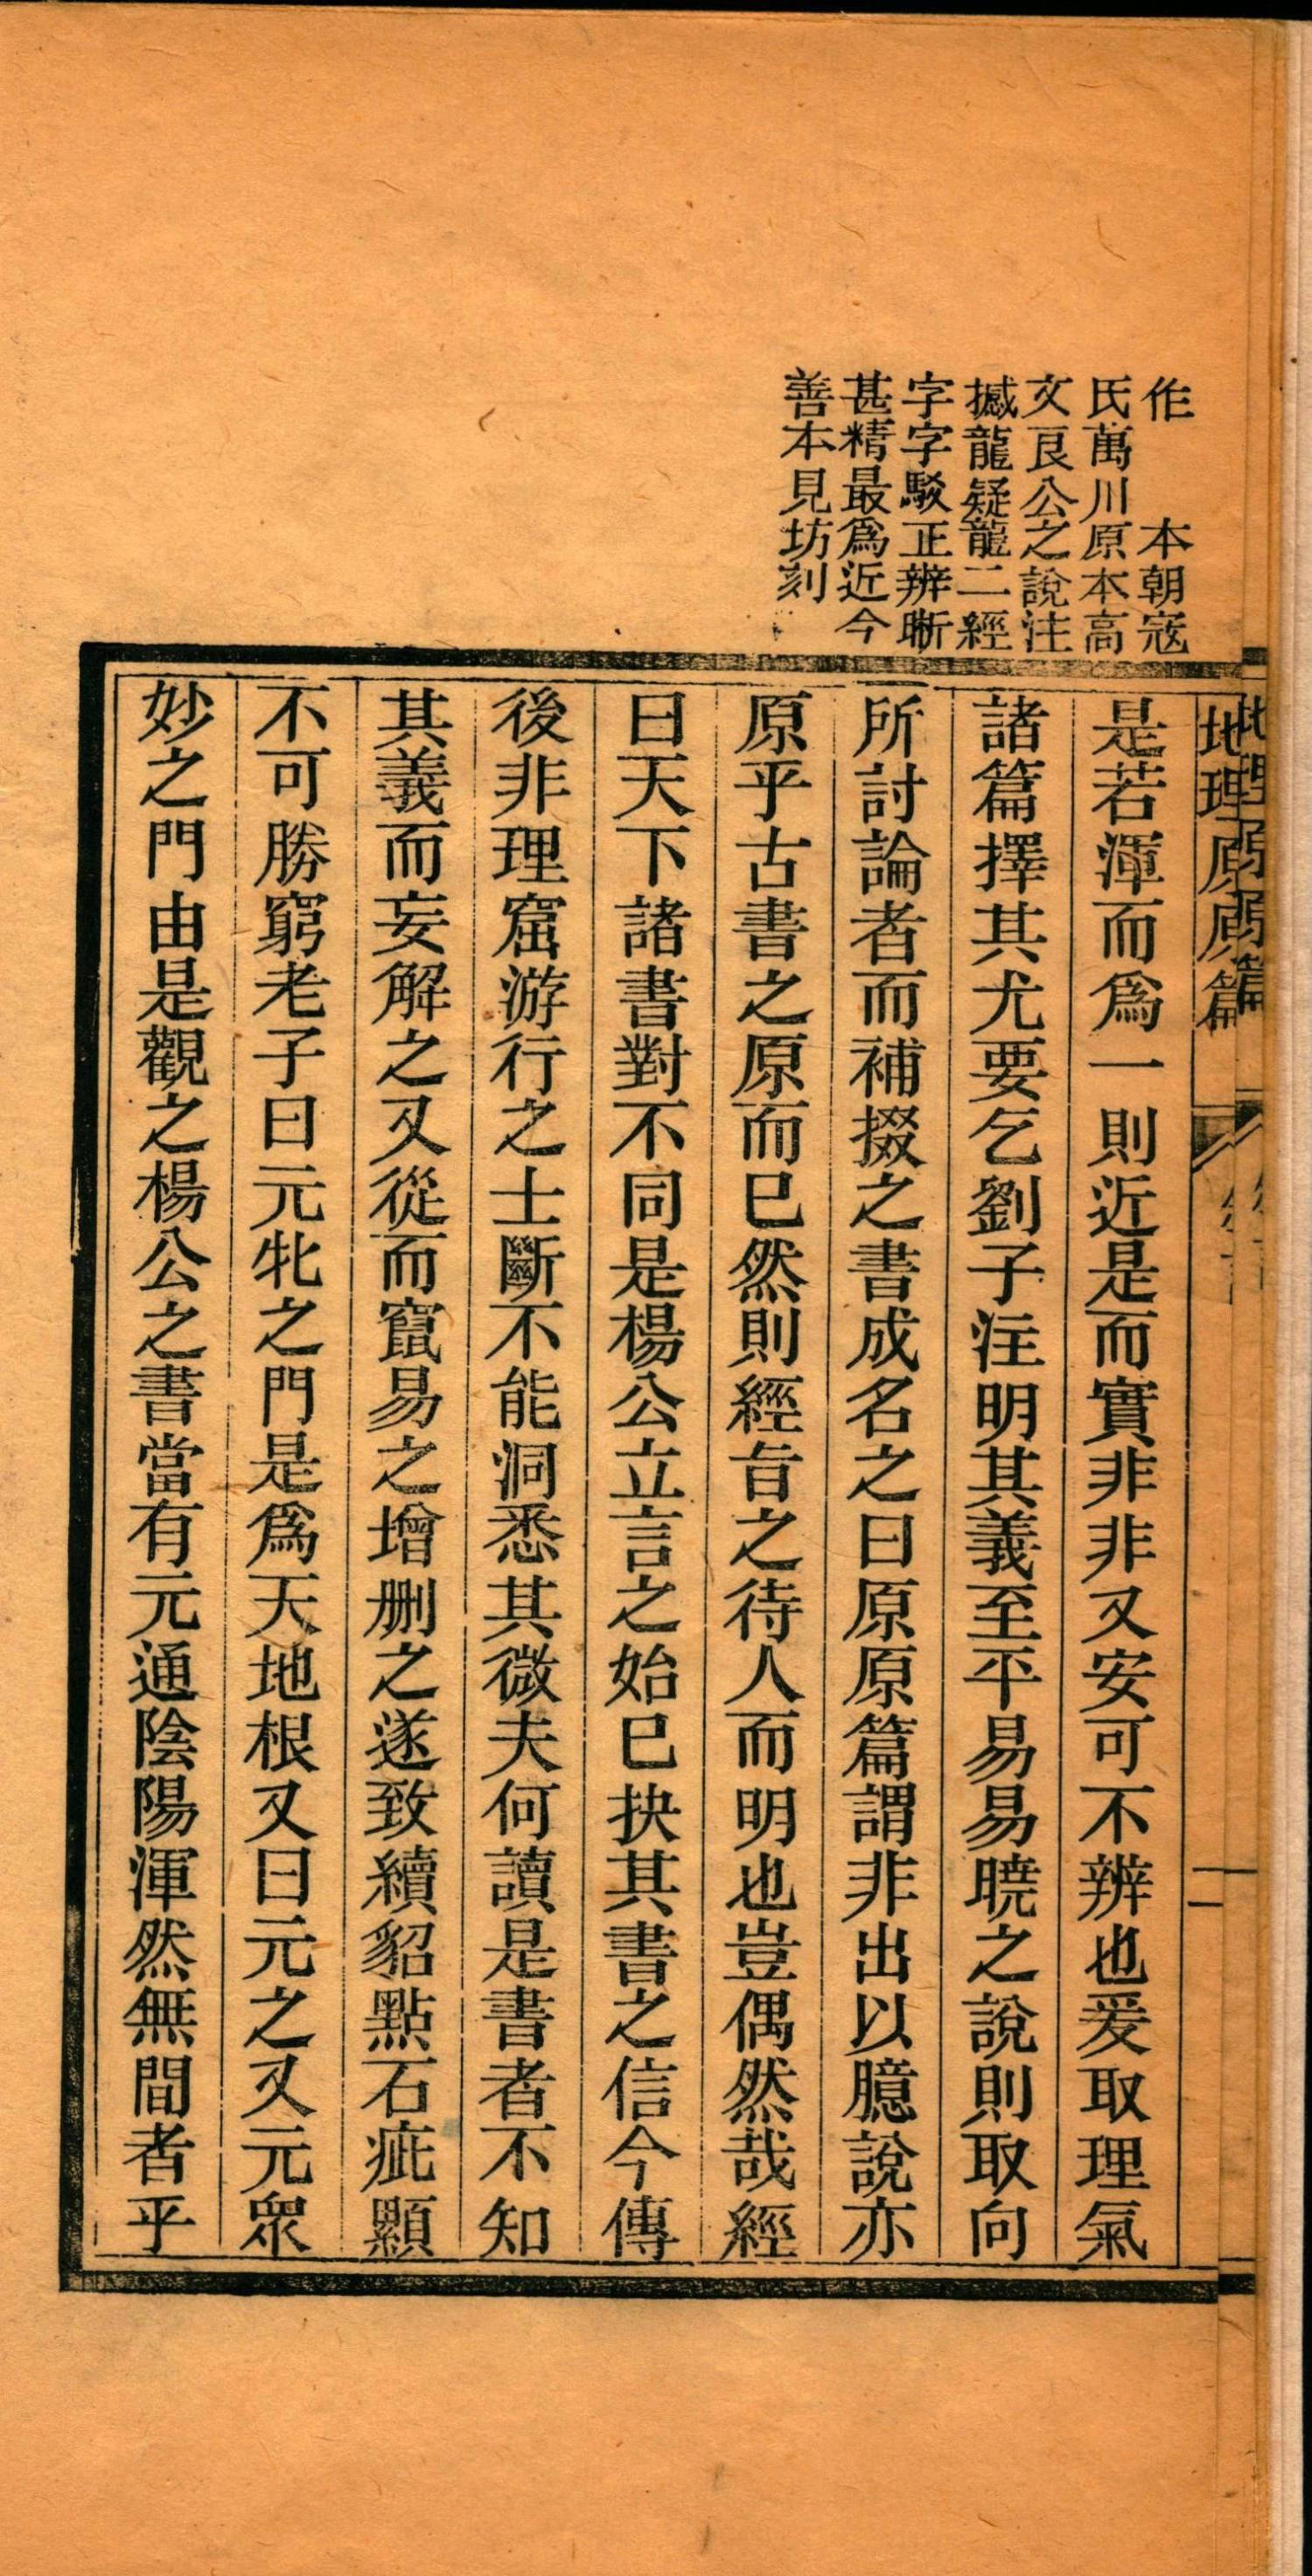 作　本朝寇
氏萬川原本高
文良公之說注
撼龍疑龍二經
字字駁正辨晰
甚精最爲近今
善本見坊刻
地理原原篇
是若渾而爲一則近是而實非非又安可不辨也爰取理氣
諸篇擇其尤要乞劉子注明其義至平易易曉之說則取向
所討論者而補掇之書成名之曰原原篇謂非出以臆說亦
原乎古書之原而已然則經旨之待人而明也豈偶然哉經
曰天下諸書對不同是楊公立言之始已抉其書之信今傳
後非理窟游行之士斷不能洞悉其微夫何讀是書者不知
其義而妄解之又從而竄易之增删之遂致續貂點石疵顯
不可勝窮老子曰元牝之門是爲天地根又曰元之又元眾
妙之門由是觀之楊公之書當有元通陰陽渾然無間者乎